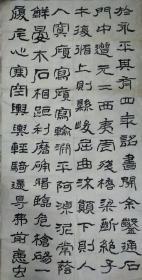 於永平其有四年詔書開余鑿通石
門中遭元二西夷虐殘橋梁斷絕子
午復循上則縣峻屈曲流顛下則
入冥廎寫輸淵平阿湶泥常蔭
鮮晏木石相距利磨确磐臨危槍碭
履尾心寒空輿輕騎遰㝵弗前惡虫